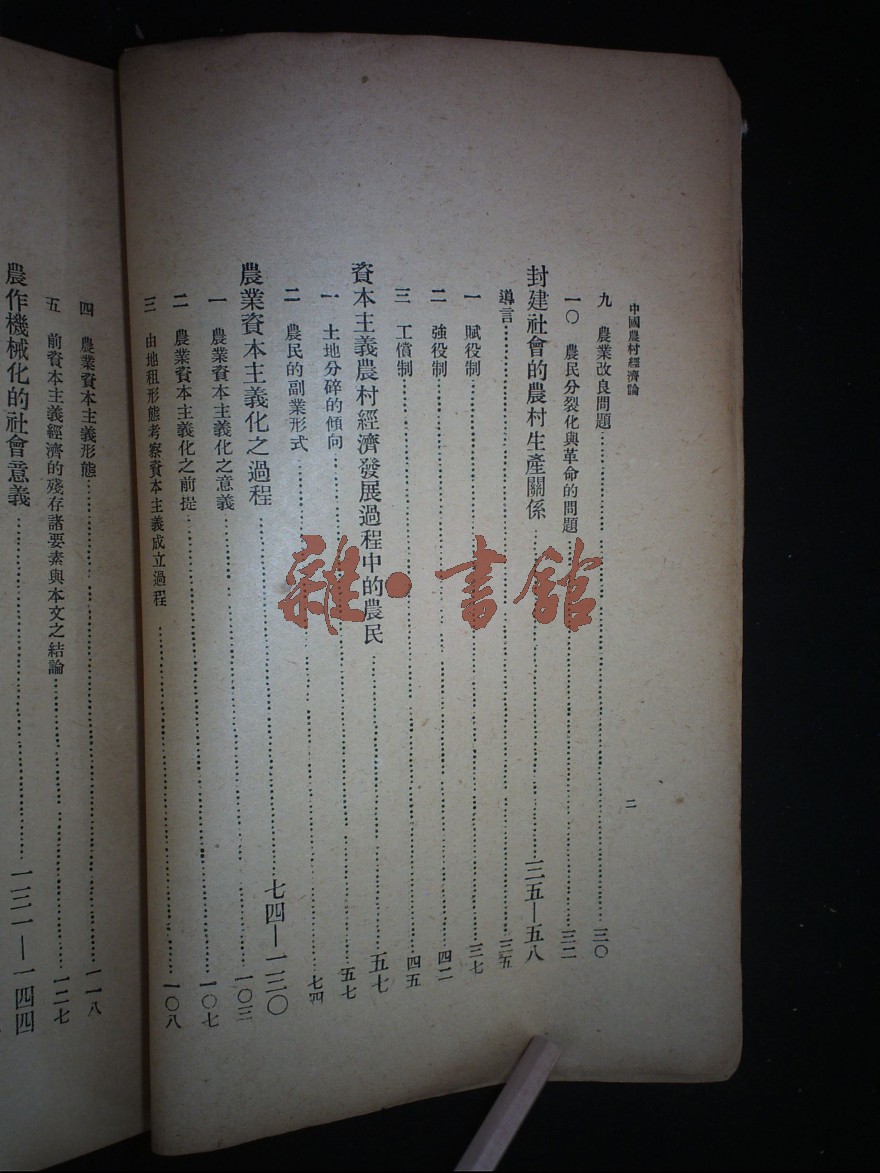 中國農村經濟論
二
九 農業改良問題……三〇
一〇 農民分裂化與革命的問題……三二
封建社會的農村生產關係……三五—五八
導言……三五
一 賦役制……三七
二 強役制……四二
三 工償制……四五
資本主義農村經濟發展過程中的農民……五七
一 土地分碎的傾向……五七
二 農民的副業形式……七四
農業資本主義化之過程……七四—一三〇
一 農業資本主義化之意義……一〇三
二 農業資本主義化之前提……一〇七
三 由地租形態考察資本主義成立過程……一〇八
四 農業資本主義形態……一一八
五 前資本主義經濟的殘存諸要素與本文之結論……一二七
農作機械化的社會意義……一三一—一四四
雜·書館